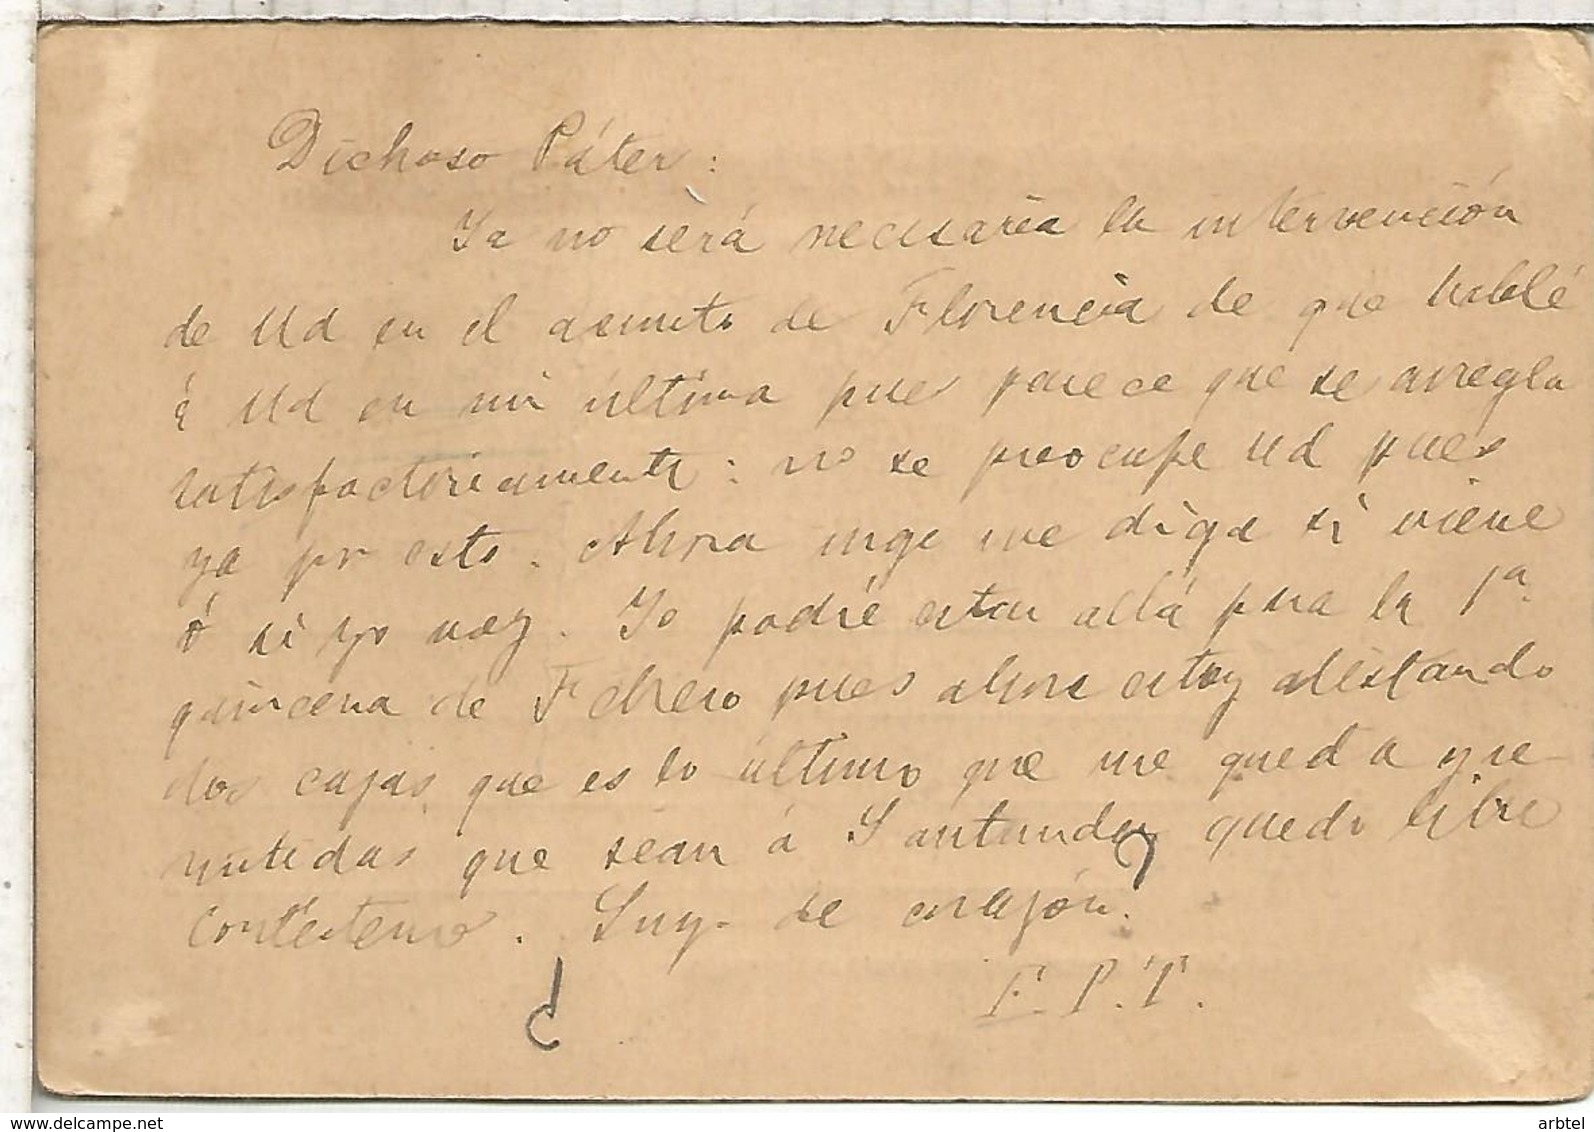 Dichoso Páter:
Ya no será necesaria la intervención
de Ud en el asunto de Florencia de que hablé
á Ud en mi última pues parece que se arregla
satisfactoriamente: no se preocupe Ud pues
ya por esto. Ahora urge me diga si viene
ó si yo voy. Yo podré estar allá para la 1ª
quincena de Febrero pues ahora estoy alistando
dos cajas que es lo último que me queda y re-
mitidas que sean á Santander quedo libre
Contésteme. Suyo de corazón.
F. P. T.
delcampe.net
arbtel